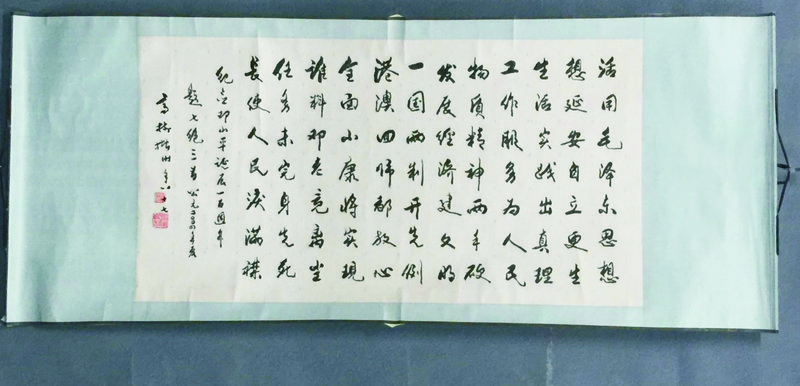 活用毛泽东思想
想延安自立更生
生活实践出真理
工作服务为人民
物质精神两手硬
发展经济建文明
一国两制开先例
港澳回归都放心
全面小康将实现
谁料邓老竟离尘
任务未完身先死
長使人民淚满襟
纪念邓小平诞辰一百週年
题七绝三首 公元二〇〇四年
高树楷 时年八十七